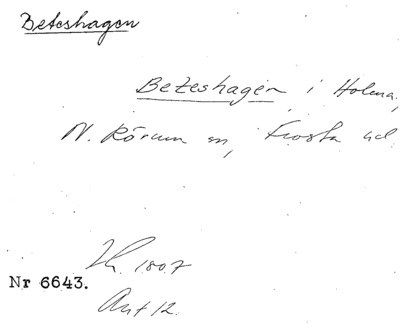 Beteshagen
Beteshagen i Holma,
N. Rörum sn, Frosta hd
Nr 6643.
Akt 12.